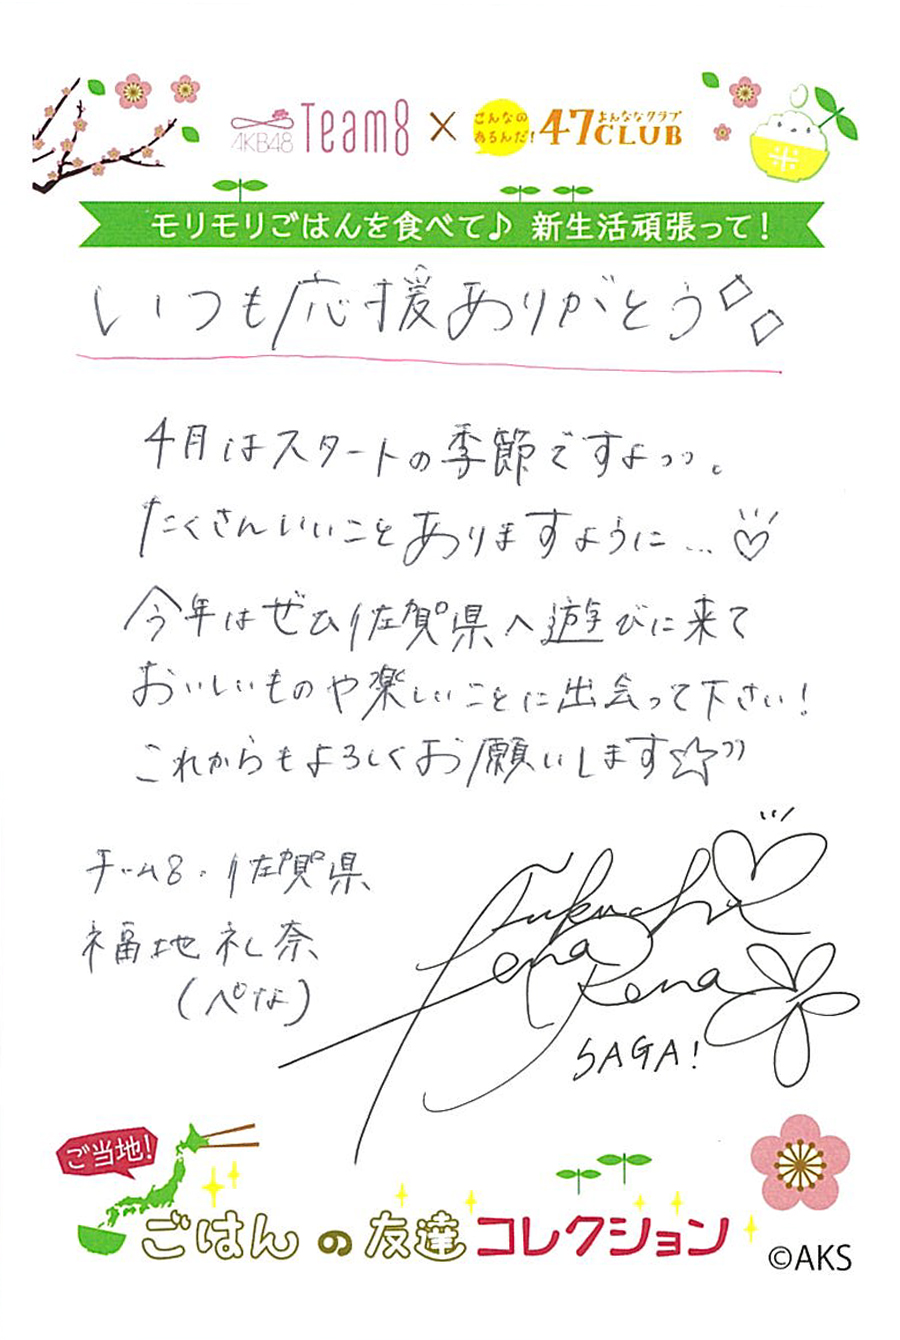 AKB48 Team8 × こんなの あるんだ! 47CLUB よんななクラブ
米
モリモリごはんを食べて♪ 新生活頑張って!
いつも応援ありがとう
4月はスタートの季節ですよっっ。
たくさんいいことありますように…♡
今年はぜひ佐賀県へ遊びに来て
おいしいものや楽しいことに出会って下さい!
これからもよろしくお願いします☆
チーム8・佐賀県
福地礼奈
(れな)
Fukuchi
Rena
Rena
SAGA!
ご当地!
ごはんの友達コレクション
©AKS